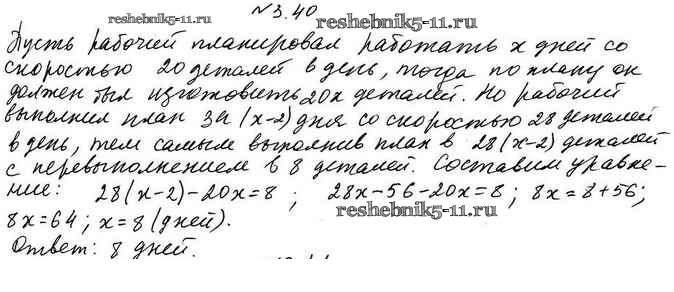 №3.40
reshebnik5-11.ru
Пусть рабочий планировал работать x дней со
скоростью 20 деталей в день, тогда по плану он
должен был изготовить 20x деталей. Но рабочий
выполнил план за (x-2) дня со скоростью 28 деталей
в день, тем самым выполнив план в 28(x-2) деталей
с перевыполнением в 8 деталей. Составим уравне-
ние: 28(x-2)-20x=8 ; 28x-56-20x=8 ; 8x=8+56;
8x=64 ; x=8 (дней). reshebnik5-11.ru
Ответ: 8 дней.